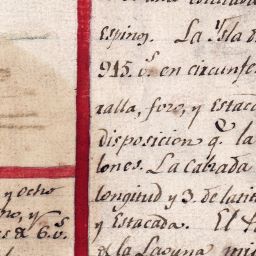 espinos. La Ysla d
915. v.s en circunfe
ralla, foso, y Estaca
disposicion q. la
lones. La Calzada
longitud y 3. de lati
y Estacada. El
de la Laguna mi
y ocho
no, y
es de 6. v.s